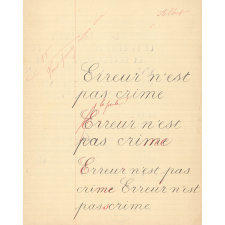 Erreur n'est
pas crime
Erreur n'est
pas crime
Erreur n'est pas
crime Erreur n'est
pas crime